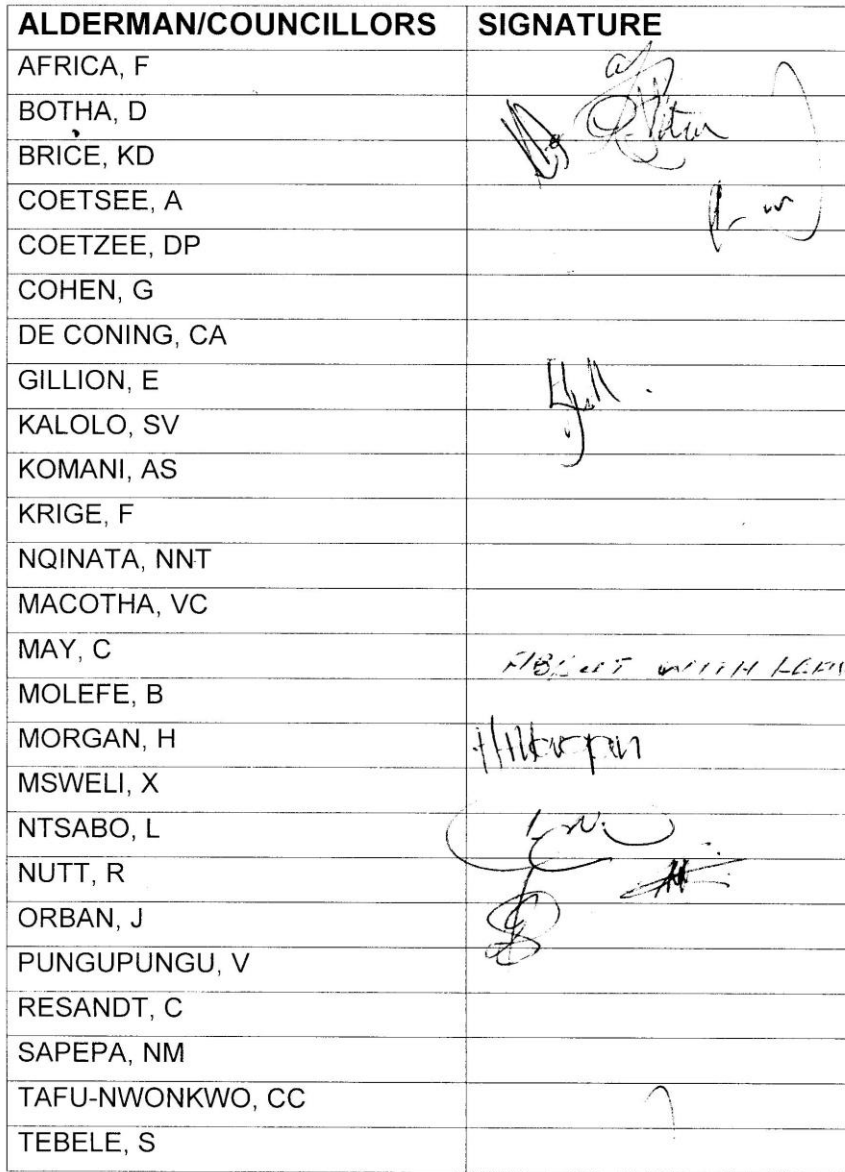 ALDERMAN/COUNCILLORS SIGNATURE
AFRICA, F
BOTHA, D
BRICE, KD
COETSEE, A
COETZEE, DP
COHEN, G
DE CONING, CA
GILLION, E
KALOLO, SV
KOMANI, AS
KRIGE, F
NQINATA, NNT
MACOTHA, VC
MAY, C
ABSENT WITH LEAV
MOLEFE, B
MORGAN, H HMorgan
MSWELI, X
NTSABO, L
NUTT, R
ORBAN, J
PUNGUPUNGU, V
RESANDT, C
SAPEPA, NM
TAFU-NWONKWO, CC
TEBELE, S